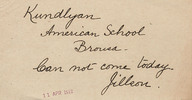 Kundlyan
American School
Brousa
Can not come today
Jillson.